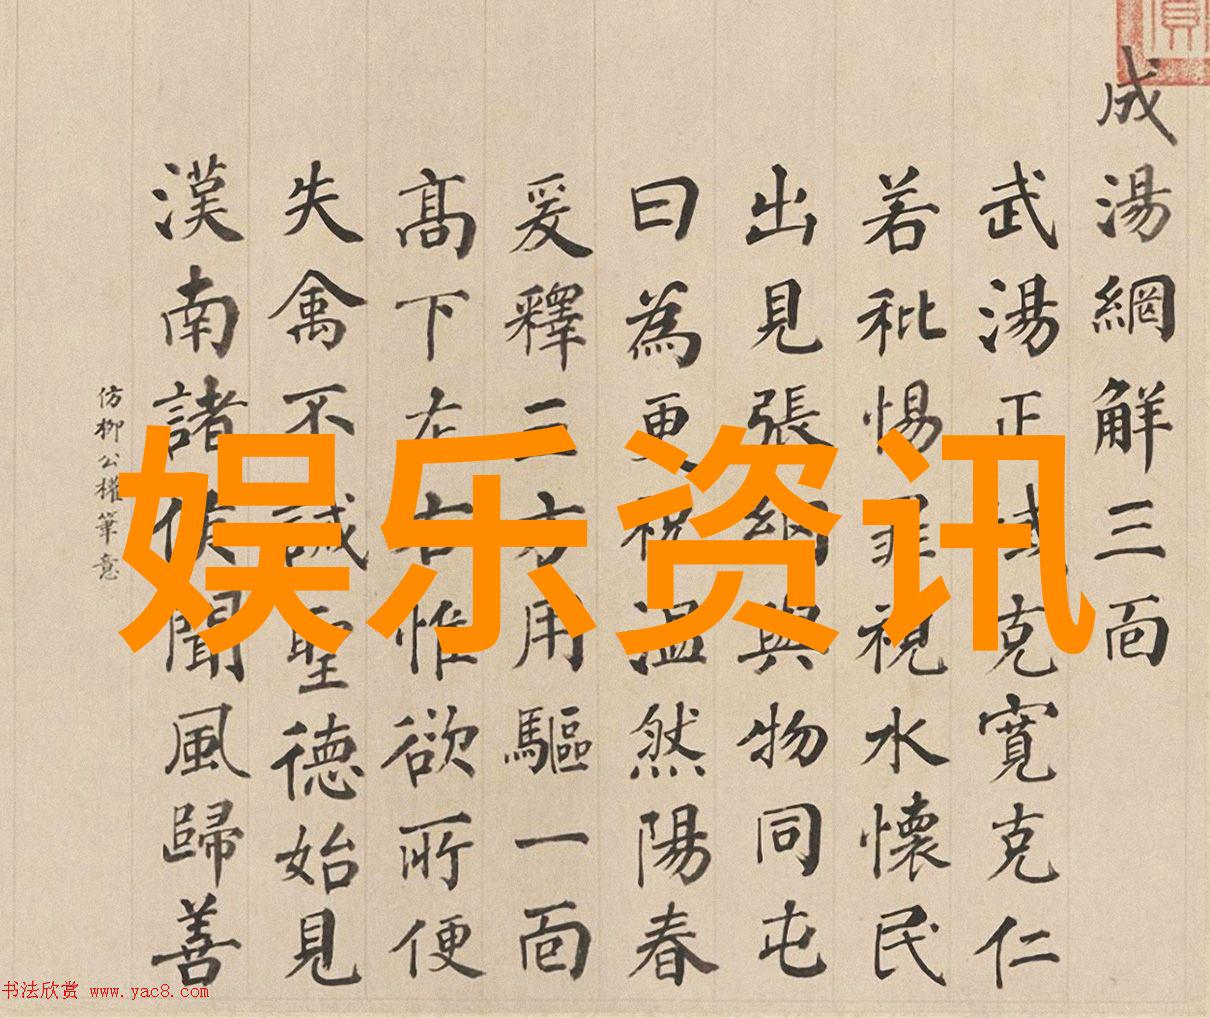 成湯網解三面
武湯正域克寬克仁
若秕惕罪視水懷民
出見張網與物同屯
曰為更祝溫然陽春
爰釋三方用驅一面
髙下左右惟欲所便
失禽不誡聖德始見
漢南諸侯聞風歸善
仿柳公權筆意
娱乐资讯
书法欣赏 www.yac8.com